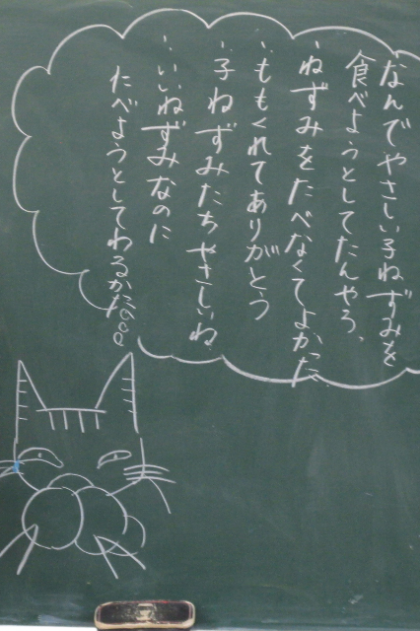 なんでやさしい子ねずみを
食べようとしてたんやろ、
・ねずみをたべなくてよかった
・ももくれてありがとう
・子ねずみたちやさしいね
・いいねずみなのに
たべようとしてわるかた。。。